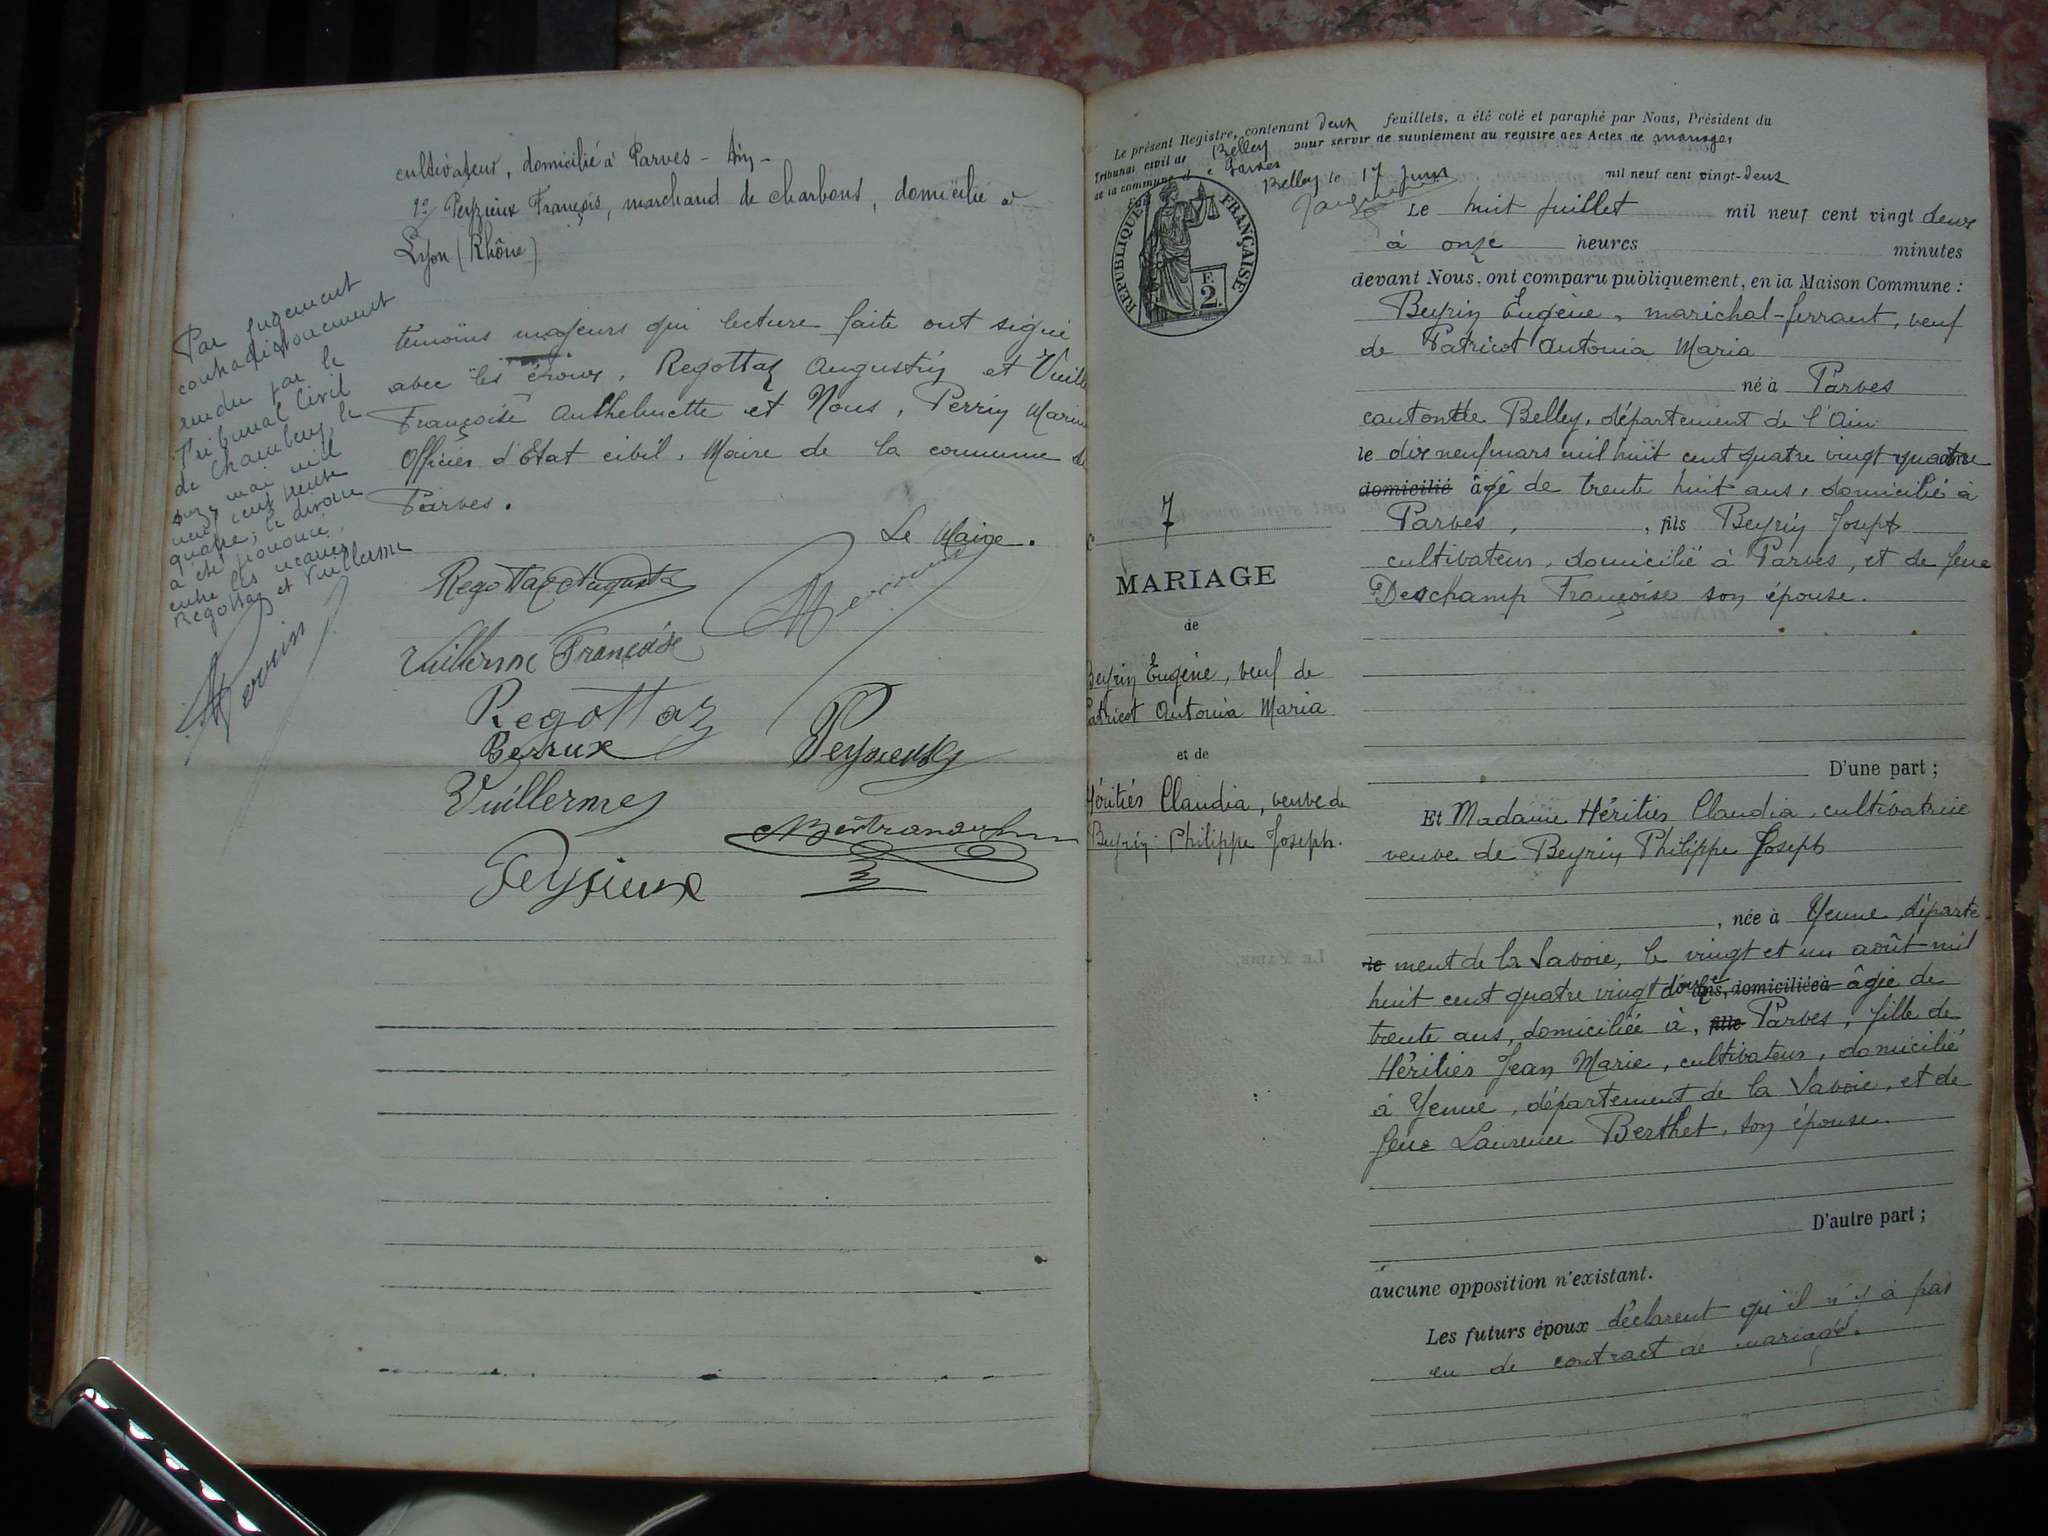 cultivateur, domicilié à Parves - Ain -
2º/ Peyzieux François, marchand de charbons, domicilié à
Lyon (Rhône)
témoins majeurs qui lecture faite ont signé
avec les époux, Regottaz Augustin et Vuille
Françoise Anthelmette et Nous, Perrin Marin
Officier d'Etat civil, Maire de la commune de
Parves.
Le Maire.
Par jugement
contradictoirement
rendu par le
Tribunal Civil
de Chambéry, le
onze mai mil
neuf cent trente
quatre, le divorce
a été prononcé
entre les mariés
Regottaz et Vuillerme
Perrin
Regottaz Augustin
Vuillerme Françoise
Regottaz
Berrux
Peyzieux
Vuillermes
Bertrand
Peyzieux
Le présent Registre, contenant deux feuillets, a été coté et paraphé par Nous, Président du
Tribunal civil de Belley pour servir de supplément au registre des Actes de mariages
de la commune de Parves
Belley le 17 Juin mil neuf cent vingt-deux
RÉPUBLIQUE FRANÇAISE
F
2.
Le huit juillet mil neuf cent vingt deux
à onze heures minutes
devant Nous, ont comparu publiquement, en la Maison Commune :
Beyrin Eugène, maréchal-ferrant, veuf
de Patricot Antonia Maria
né à Parves
canton de Belley, département de l'Ain
le dix neuf mars mil huit cent quatre vingt quatre
domicilié âgé de trente huit ans, domicilié à
Parves, , fils Beyrin Joseph
cultivateur, domicilié à Parves, et de feue
Deschamp Françoise son épouse.
D'une part ;
7
MARIAGE
de
Beyrin Eugène, veuf de
Patricot Antonia Maria
et de
Héritier Claudia, veuve de
Beyrin Philippe Joseph.
Et Madame Héritier Claudia, cultivatrice
veuve de Beyrin Philippe Joseph
, née à Yenne, départe-
le ment de la Savoie, le vingt et un août mil
huit cent quatre vingt douze ans, domiciliée à âgée de
trente ans, domiciliée à, fille Parves, fille de
Héritier Jean Marie, cultivateur, domicilié
à Yenne, département de la Savoie, et de
feue Laurence Berthet, son épouse.
D'autre part ;
aucune opposition n'existant.
Les futurs époux déclarent qu'il n'y a pas
eu de contract de mariage.